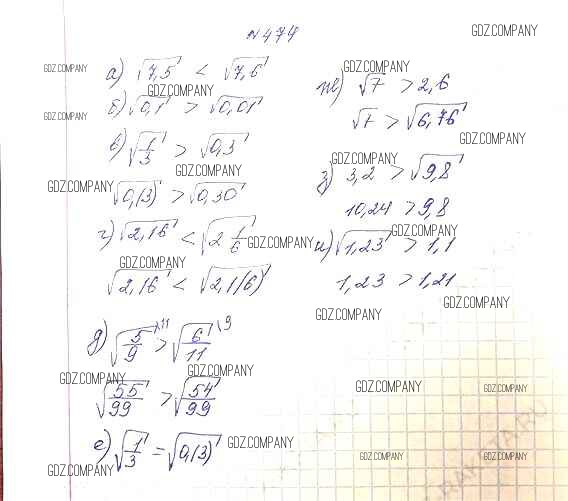 №474
GDZ.COMPANY
а) √7,5 < √7,6
GDZ.COMPANY
GDZ.COMPANY
б) √0,1 > √0,01
GDZ.COMPANY
в) √1/3 > √0,3
√0,(3) > √0,30
GDZ.COMPANY
г) √2,16 < √2 1/6
GDZ.COMPANY
√2,16 < √2,1(6)
GDZ.COMPANY
д) √5/9 \11 > √6/11 \9
GDZ.COMPANY
GDZ.COMPANY
√55/99 > √54/99
е) √1/3 = √0,(3)
GDZ.COMPANY
GDZ.COMPANY
GDZ.COMPANY
ж) √7 > 2,6
√7 > √6,76
GDZ.COMPANY
GDZ.COMPANY
з) 3,2 > √9,8
10,24 > 9,8
GDZ.COMPANY
и) √1,23 > 1,1
1,23 > 1,21
GDZ.COMPANY
GDZ.COMPANY
GDZ.COMPANY
GDZ.COMPANY
GDZ.COMPANY
GDZ.COMPANY